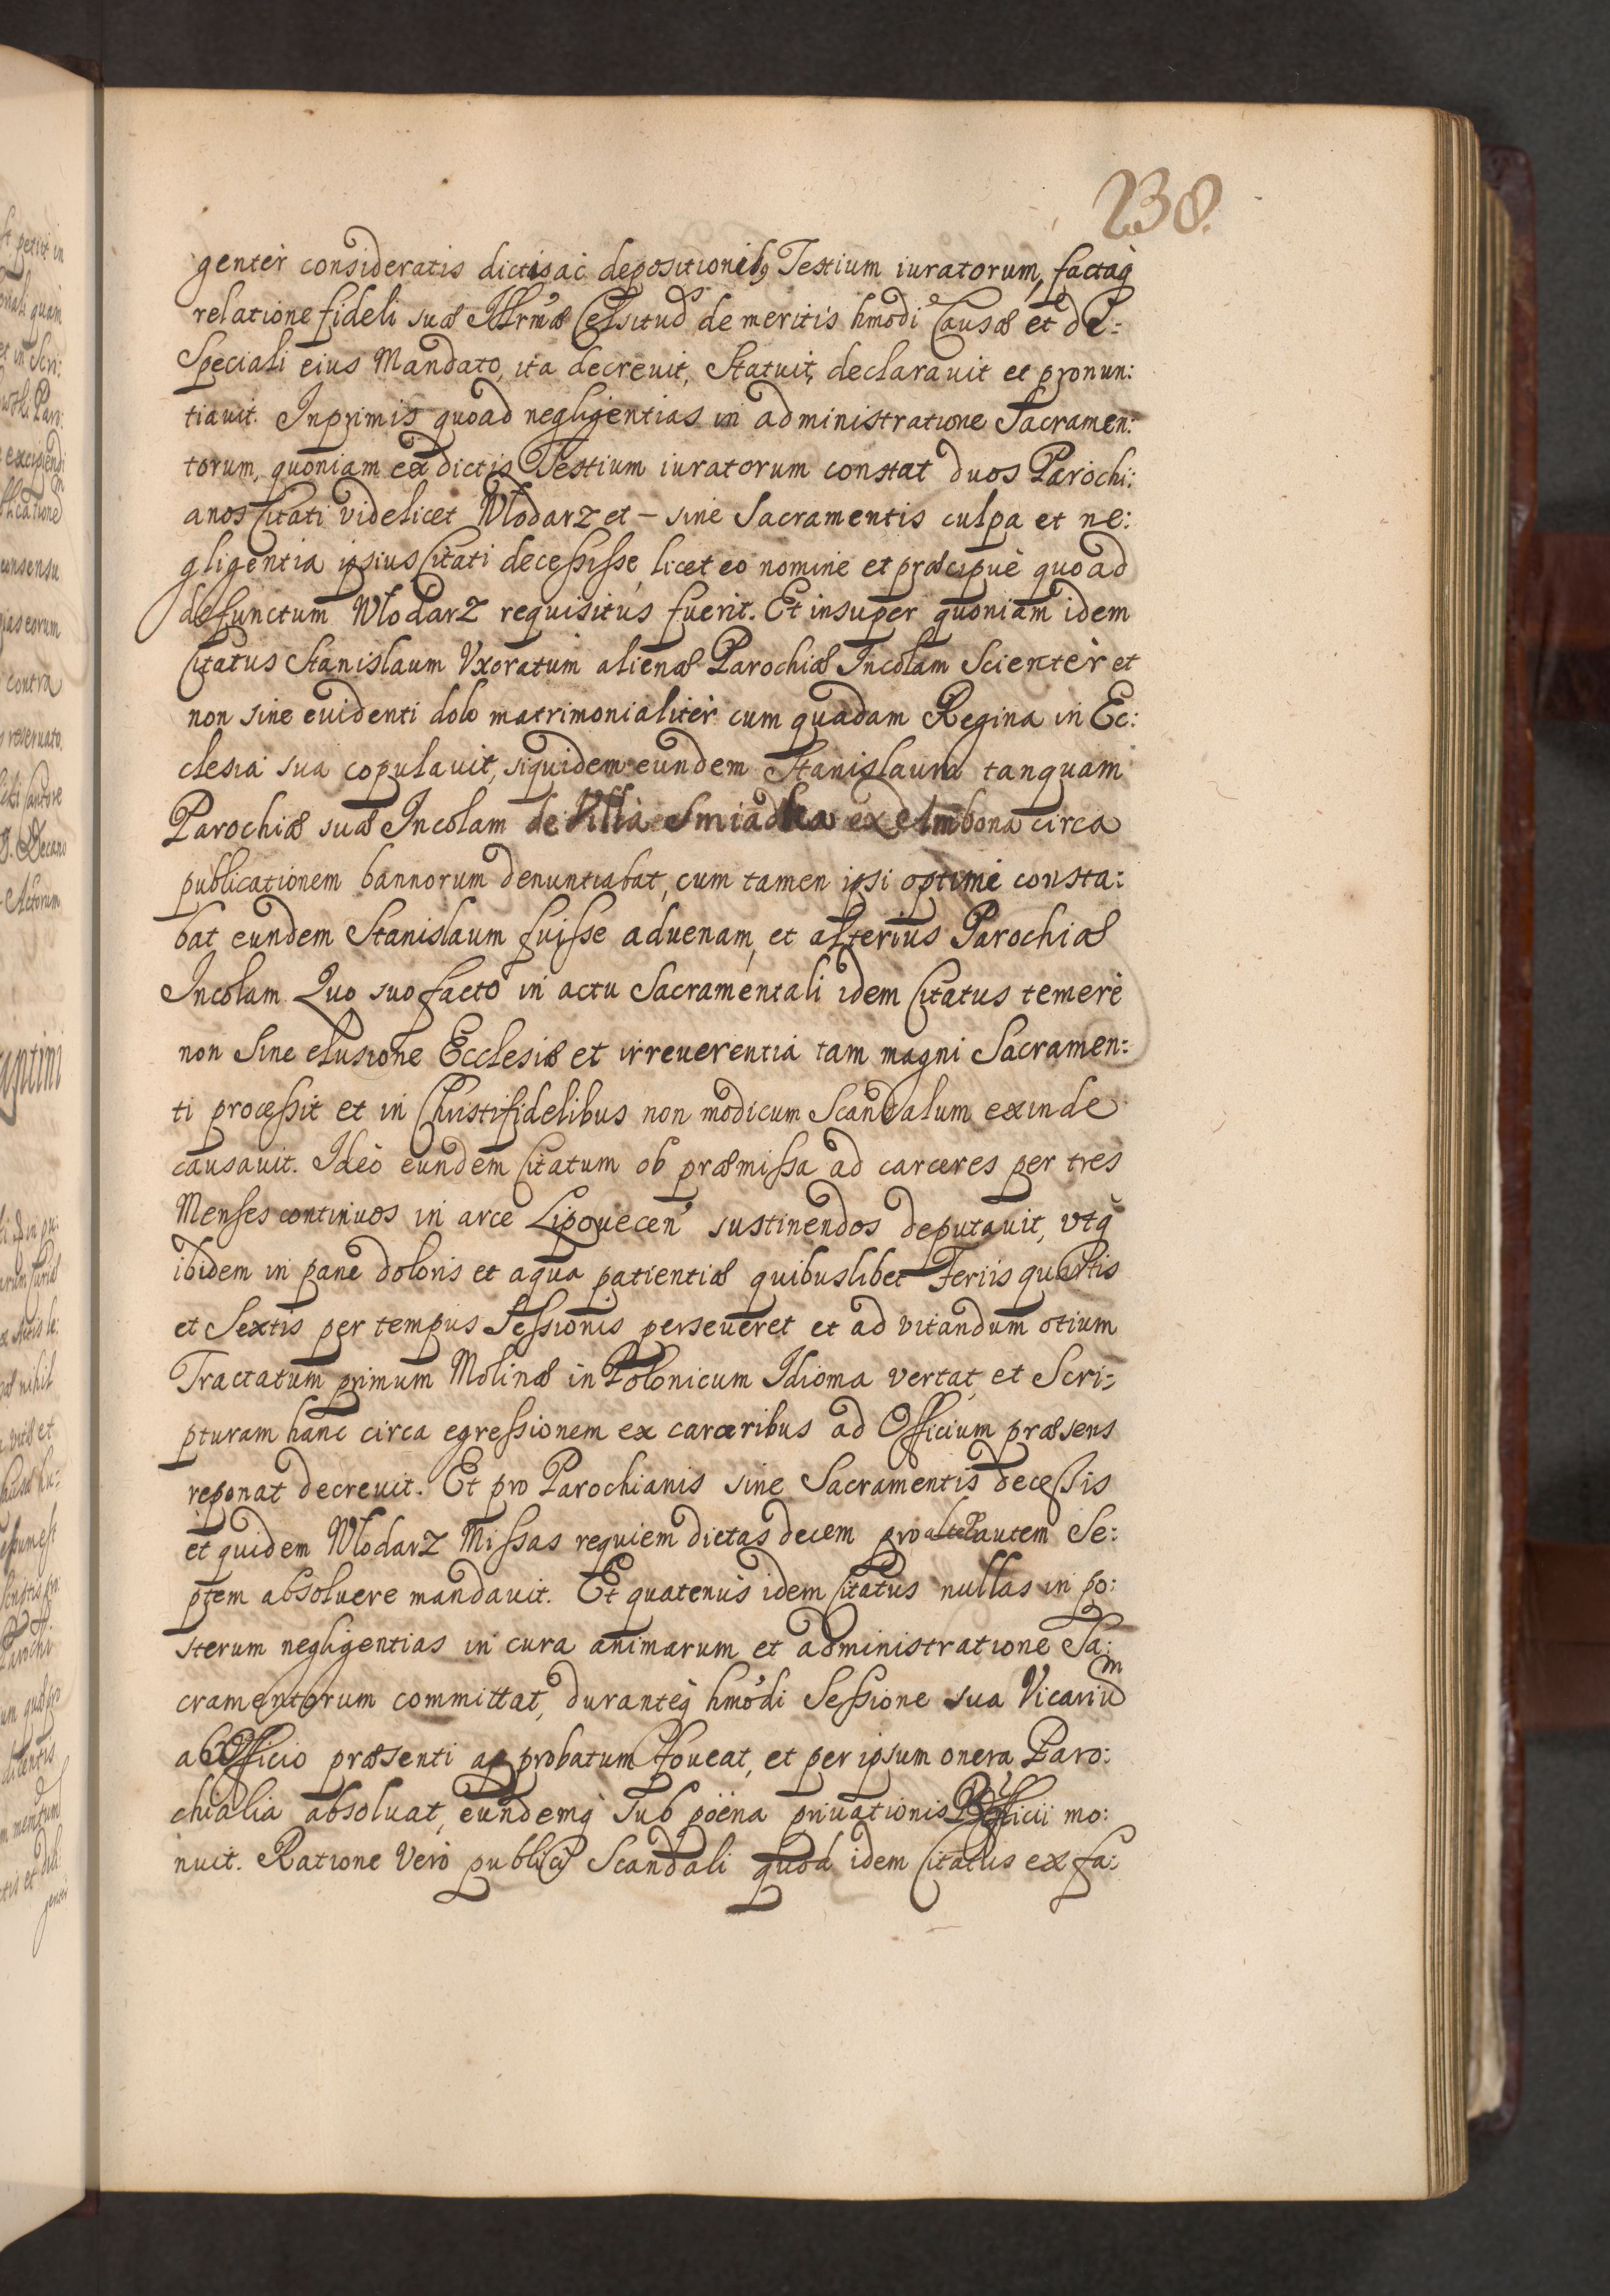 238.
gentèr consideratis dictis ac depositionibꝫ Testium iuratorum, factaqꝫ
relatione fideli suæ Illrmæ Celsitud de meritis hmōdi Causæ et de=
Speciali eius Mandato, ita decrevit, Statuit, declarauit et pronun:
tiauit. Inprimis quoad negligentias in administratione Sacramen:
torum, quoniam ex dictis Testium iuratorum constat duos Parochi:
anos Citati videlicet Włodarz et – sine Sacramentis culpa et ne:
gligentia ipsius Citati decessisse, licet eo nomine et præcipuè quoad
defunctum Włodarz requisitus fuerit. Et insuper quoniam idem
Citatus Stanislaum Vxoratum alienæ Parochiæ Incolam Scientèr et
non sine euidenti dolo matrimonialitèr cum quadam Regina in Ec:
clesia sua copulauit, siquidem eundem Stanislaum tanquam
Parochiæ suæ Incolam de Villa ex Ambona circa
publicationem bannorum denuntiabat, cum tamen ipsi optimè consta:
bat eundem Stanislaum fuisse aduenam, et alterius Parochiæ
Incolam. Quo suo facto in actu Sacramentali idem Citatus temerè
non Sine elusione Ecclesiæ et irreuerentia tam magni Sacramen:
ti processit et in Christifidelibus non modicum Scandalum exinde
causauit. Ideò eundem Citatum ob præmissa ad carceres per tres
Menses continuos in arce Lipouecen̄ sustinendos deputauit, vtqꝫ
ibidem in pane doloris et aqua patientiæ quibuslibet Feriis quartis
et Sextis per tempus Sessionis perseueret et ad vitandum otium
Tractatum primum Molinæ in Polonicum Idioma vertat, et Scri:
pturam hanc circa egressionem ex carceribus ad Officium præsens
reponat decreuit. Et pro Parochianis sine Sacramentis decessis
et quidem Włodarz Missas requiem dictas decem pro altero autem Se:
ptem absoluere mandauit. Et quatenus idem Citatus nullas in po:
sterum negligentias in cura animarum et administratione Sa:
cramentorum committat, duranteqꝫ hmōdi Sessione sua Vicariūm
ab Officio præsenti approbatum foueat, et per ipsum onera Paro:
chialia absoluat, eundemqꝫ sub pöena priuationis Officii mo:
nuit. Ratione Verò publici Scandali quod idem Citatus ex fa: